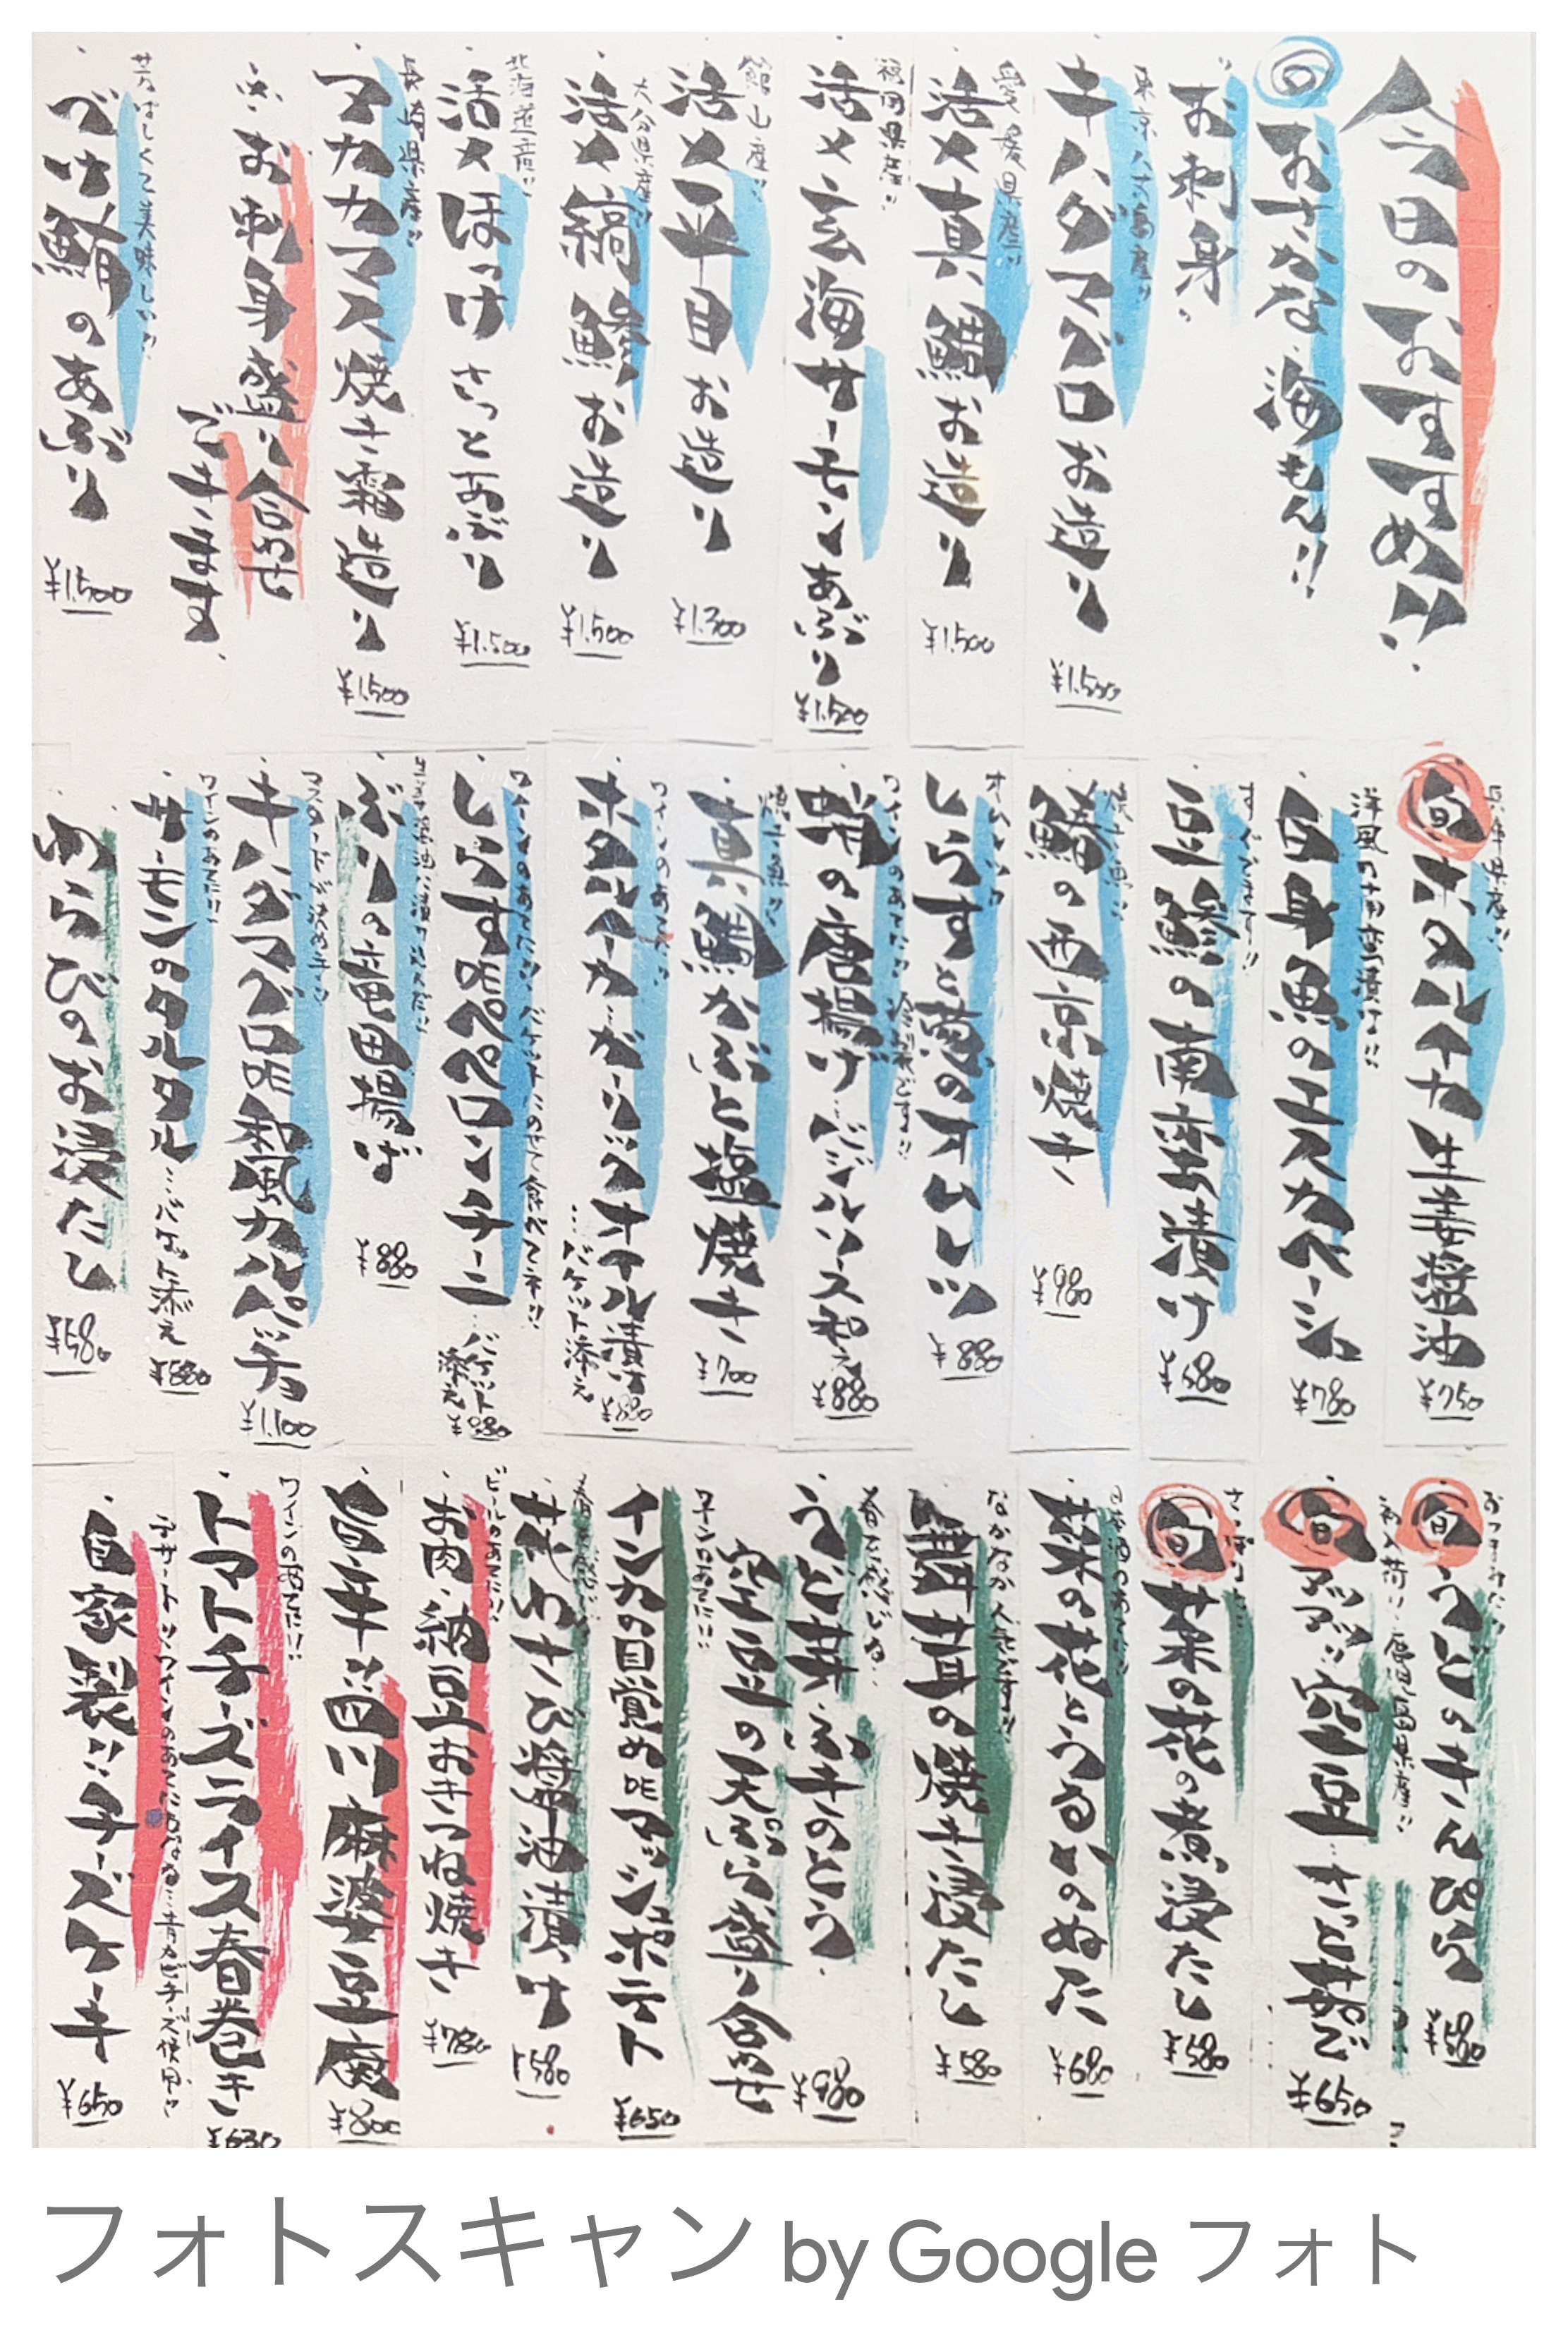 今日のおすすめ!!
旬おさかな、海もん!!
お刺身
東京八丈島産!!
キハダマグロお造り
¥1.500
愛媛県産!!
活〆真鯛お造り
¥1.500
福岡県産!!
活〆玄海サーモンあぶり
¥1.500
館山産!!
活〆平目お造り
¥1.300
大分県産!!
活〆縞鯵お造り
¥1.500
北海道産!!
活〆ほっけさっとあぶり
¥1.500
長崎県産!!
アカカマス焼き霜造り
¥1.500
※お刺身盛り合わせ
できます
甘ずっぱしくて美味しい!!
づけ鮪のあぶり
¥1.500
兵庫県産!!
旬ホタルイカ生姜醤油
¥750
洋風の南蛮漬け!!
白身魚のエスカベーシュ
¥780
すぐでます!!
豆鯵の南蛮漬け
¥680
焼き魚!!
鰆の西京焼き
¥980
オムレツ!!
しらすと葱のオムレツ
¥880
ワインのあてに!!
蛸の唐揚げ…バジルソース和え
¥880
焼き魚!!
真鯛かぶと塩焼き
¥700
ワインのあてに!!
ホタルイカ…ガーリックオイル漬け
…バケット添え
¥880
ワインのあてに!! バケットにのせて食べてネ!!
しらすDEペペロンチーニ…バケット添え
¥880
生姜醤油に漬け込んだ!!
ぶりの竜田揚げ
¥880
マスタードが決め手!!
キハダマグロDE和風カルパッチョ
¥1.100
ワインのあてに!!
サーモンのタルタル…バケット添え
¥880
わらびのお浸たし
¥580
おつまみに!!
旬うどのきんぴら
¥580
初入荷!! 鹿児島県産!!
旬空豆…さっと茹で
¥650
旬菜の花の煮浸たし
¥580
日本酒のあてに!!
菜の花とうるいのぬた
¥680
なかなか人気です!!
舞茸の焼き浸たし
¥580
うど芽・ふきのとう
空豆の天ぷら盛り合せ
¥980
ワインのあてに!!
インカの目覚めDEマッシュポテト
¥650
花わさび醤油漬け
¥580
ビールのあてに!!
お肉、納豆おきつね焼き
¥780
旨辛!!四川麻婆豆腐
¥800
ワインのあてに!!
トマトチーズライス春巻き
¥630
デザート!!ワインのあてにもなる…青カビチーズ使用!!
自家製!!チーズケーキ
¥650
フォトスキャン by Google フォト